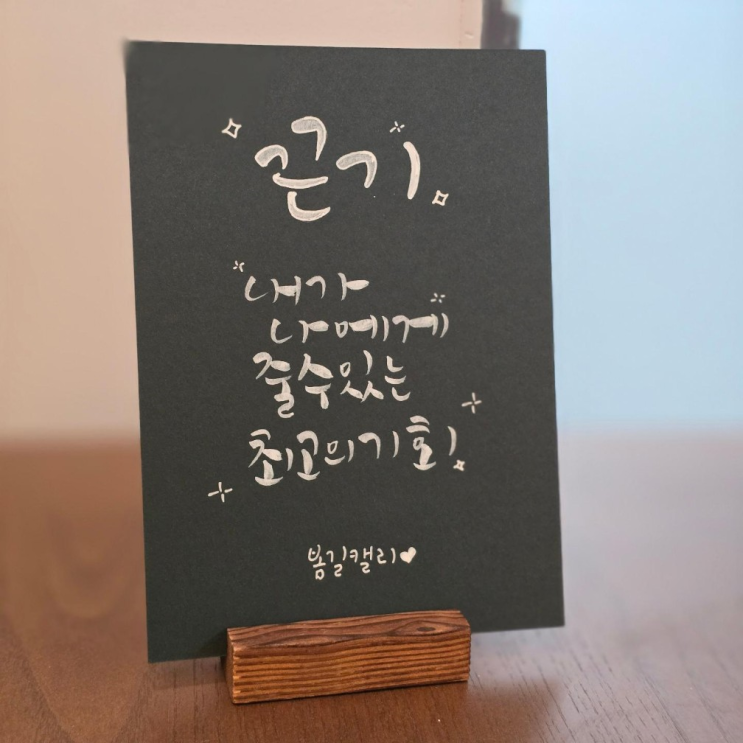 끈기
내가
나에게
줄수있는
최고의기회!
봄길캘리♥